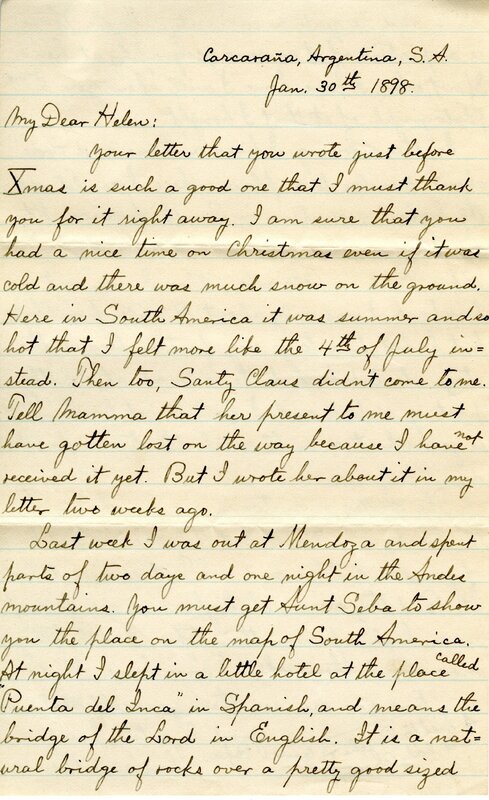 Carcaraña, Argentina, S.A.
Jan. 30th 1898.
My Dear Helen:
your letter that you wrote just before
Xmas is such a good one that I must thank
you for it right away. I am sure that you
had a nice time on Christmas even if it was
cold and there was much snow on the ground.
Here in South America it was summer and so
hot that I felt more like the 4th of July in=
stead. Then too, Santy Claus didn't come to me.
Tell Mamma that her present to me must
have gotten lost on the way because I have not
received it yet. But I wrote her about it in my
letter two weeks ago.
Last week I was out at Mendoza and spent
parts of two days and one night in the Andes
mountains. You must get Aunt Seba to show
you the place on the map of South America.
At night I slept in a little hotel at the place called
"Puenta del Inca" in Spanish, and means the
bridge of the Lord in English. It is a nat=
ural bridge of rocks over a pretty good sized